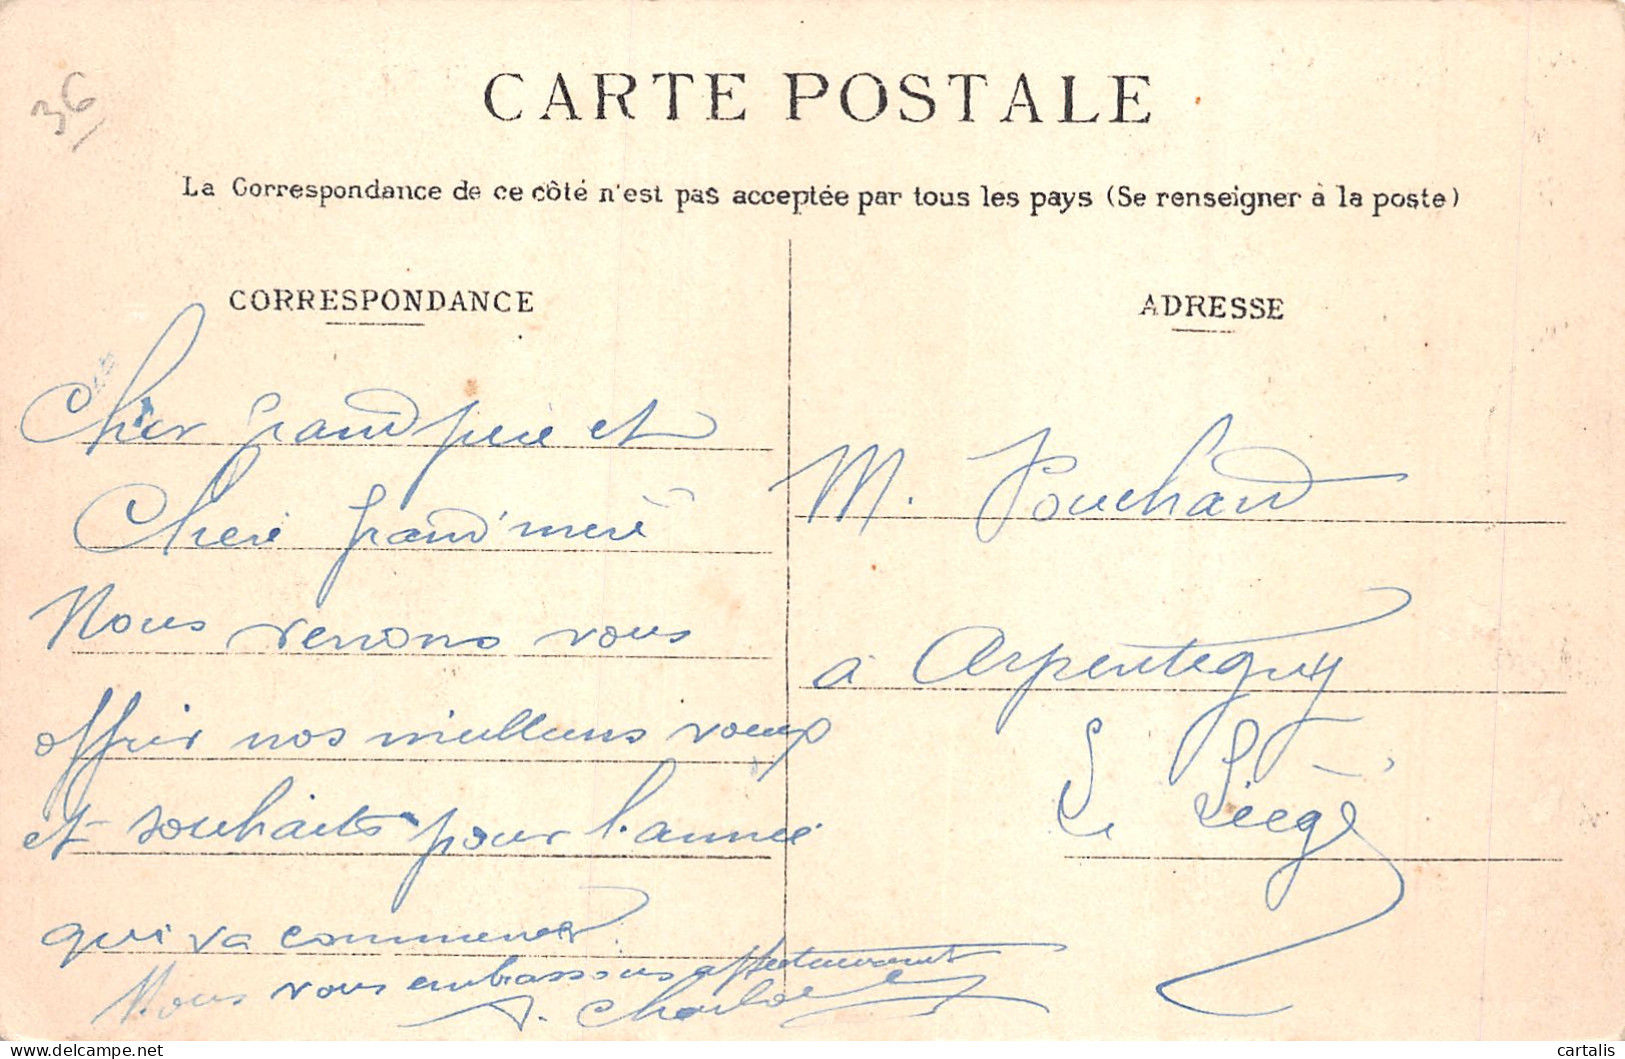 36
CARTE POSTALE
La Correspondance de ce côté n'est pas acceptée par tous les pays (Se renseigner à la poste)
CORRESPONDANCE
Cher grand père et
Chère grand'mère
Nous venons vous
offrir nos meilleurs voeux
et souhaits pour l'année
qui va commencer.
Nous vous embrassons affectueusement
ADRESSE
M. Pouchard
à Arpentigny
Le Liège
cartalis